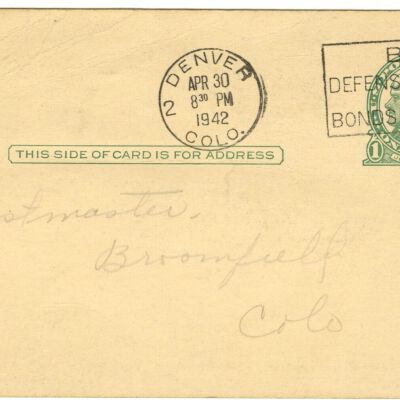 DENVER
APR 30
8 30 PM
1942
2
COLO.
B
DEFENS
BONDS
1
THIS SIDE OF CARD IS FOR ADDRESS
stmaster,
Broomfield
Colo